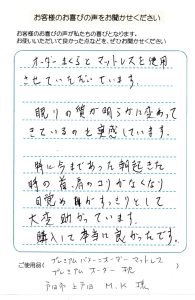 お客様のお喜びの声をお聞かせください
お客様のお喜びの声が私たちの喜びとなります。
お使いいただいて良かった点などを、ぜひお聞かせください
オーダーまくらとマットレスを使用
させていただいています。
眠りの質が明らかに変わって
きているのを実感しています。
特に今まであった朝起きた
時の首、肩のコリがなくなり
目覚め時がすっきりとして
大変助かっています。
購入して本当に良かったです。
ご使用品（
プレミアムパターンオーダーマットレス
プレミアムオーダー枕
戸田市 上戸田 M.K 様